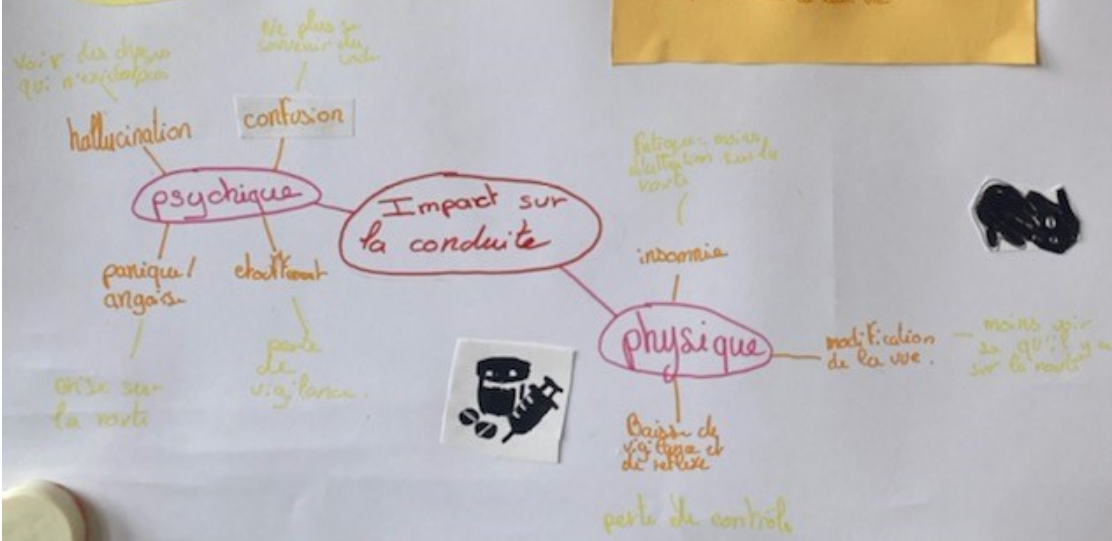 Ne plus se
souvenir du
Voir des choses
qui n'existe pas
hallucination
confusion
psychique
Impact sur
la conduite
panique/
angoisse
etouffement
crise sur
la route
perte
de
vigilance.
Fatigue = moins
d'attention sur la
route
insomnie
physique
modification
de la vue.
moins voir
ce qu'il y a
sur la route
Baisse de
vigilance et
de reflexe
perte de contrôle